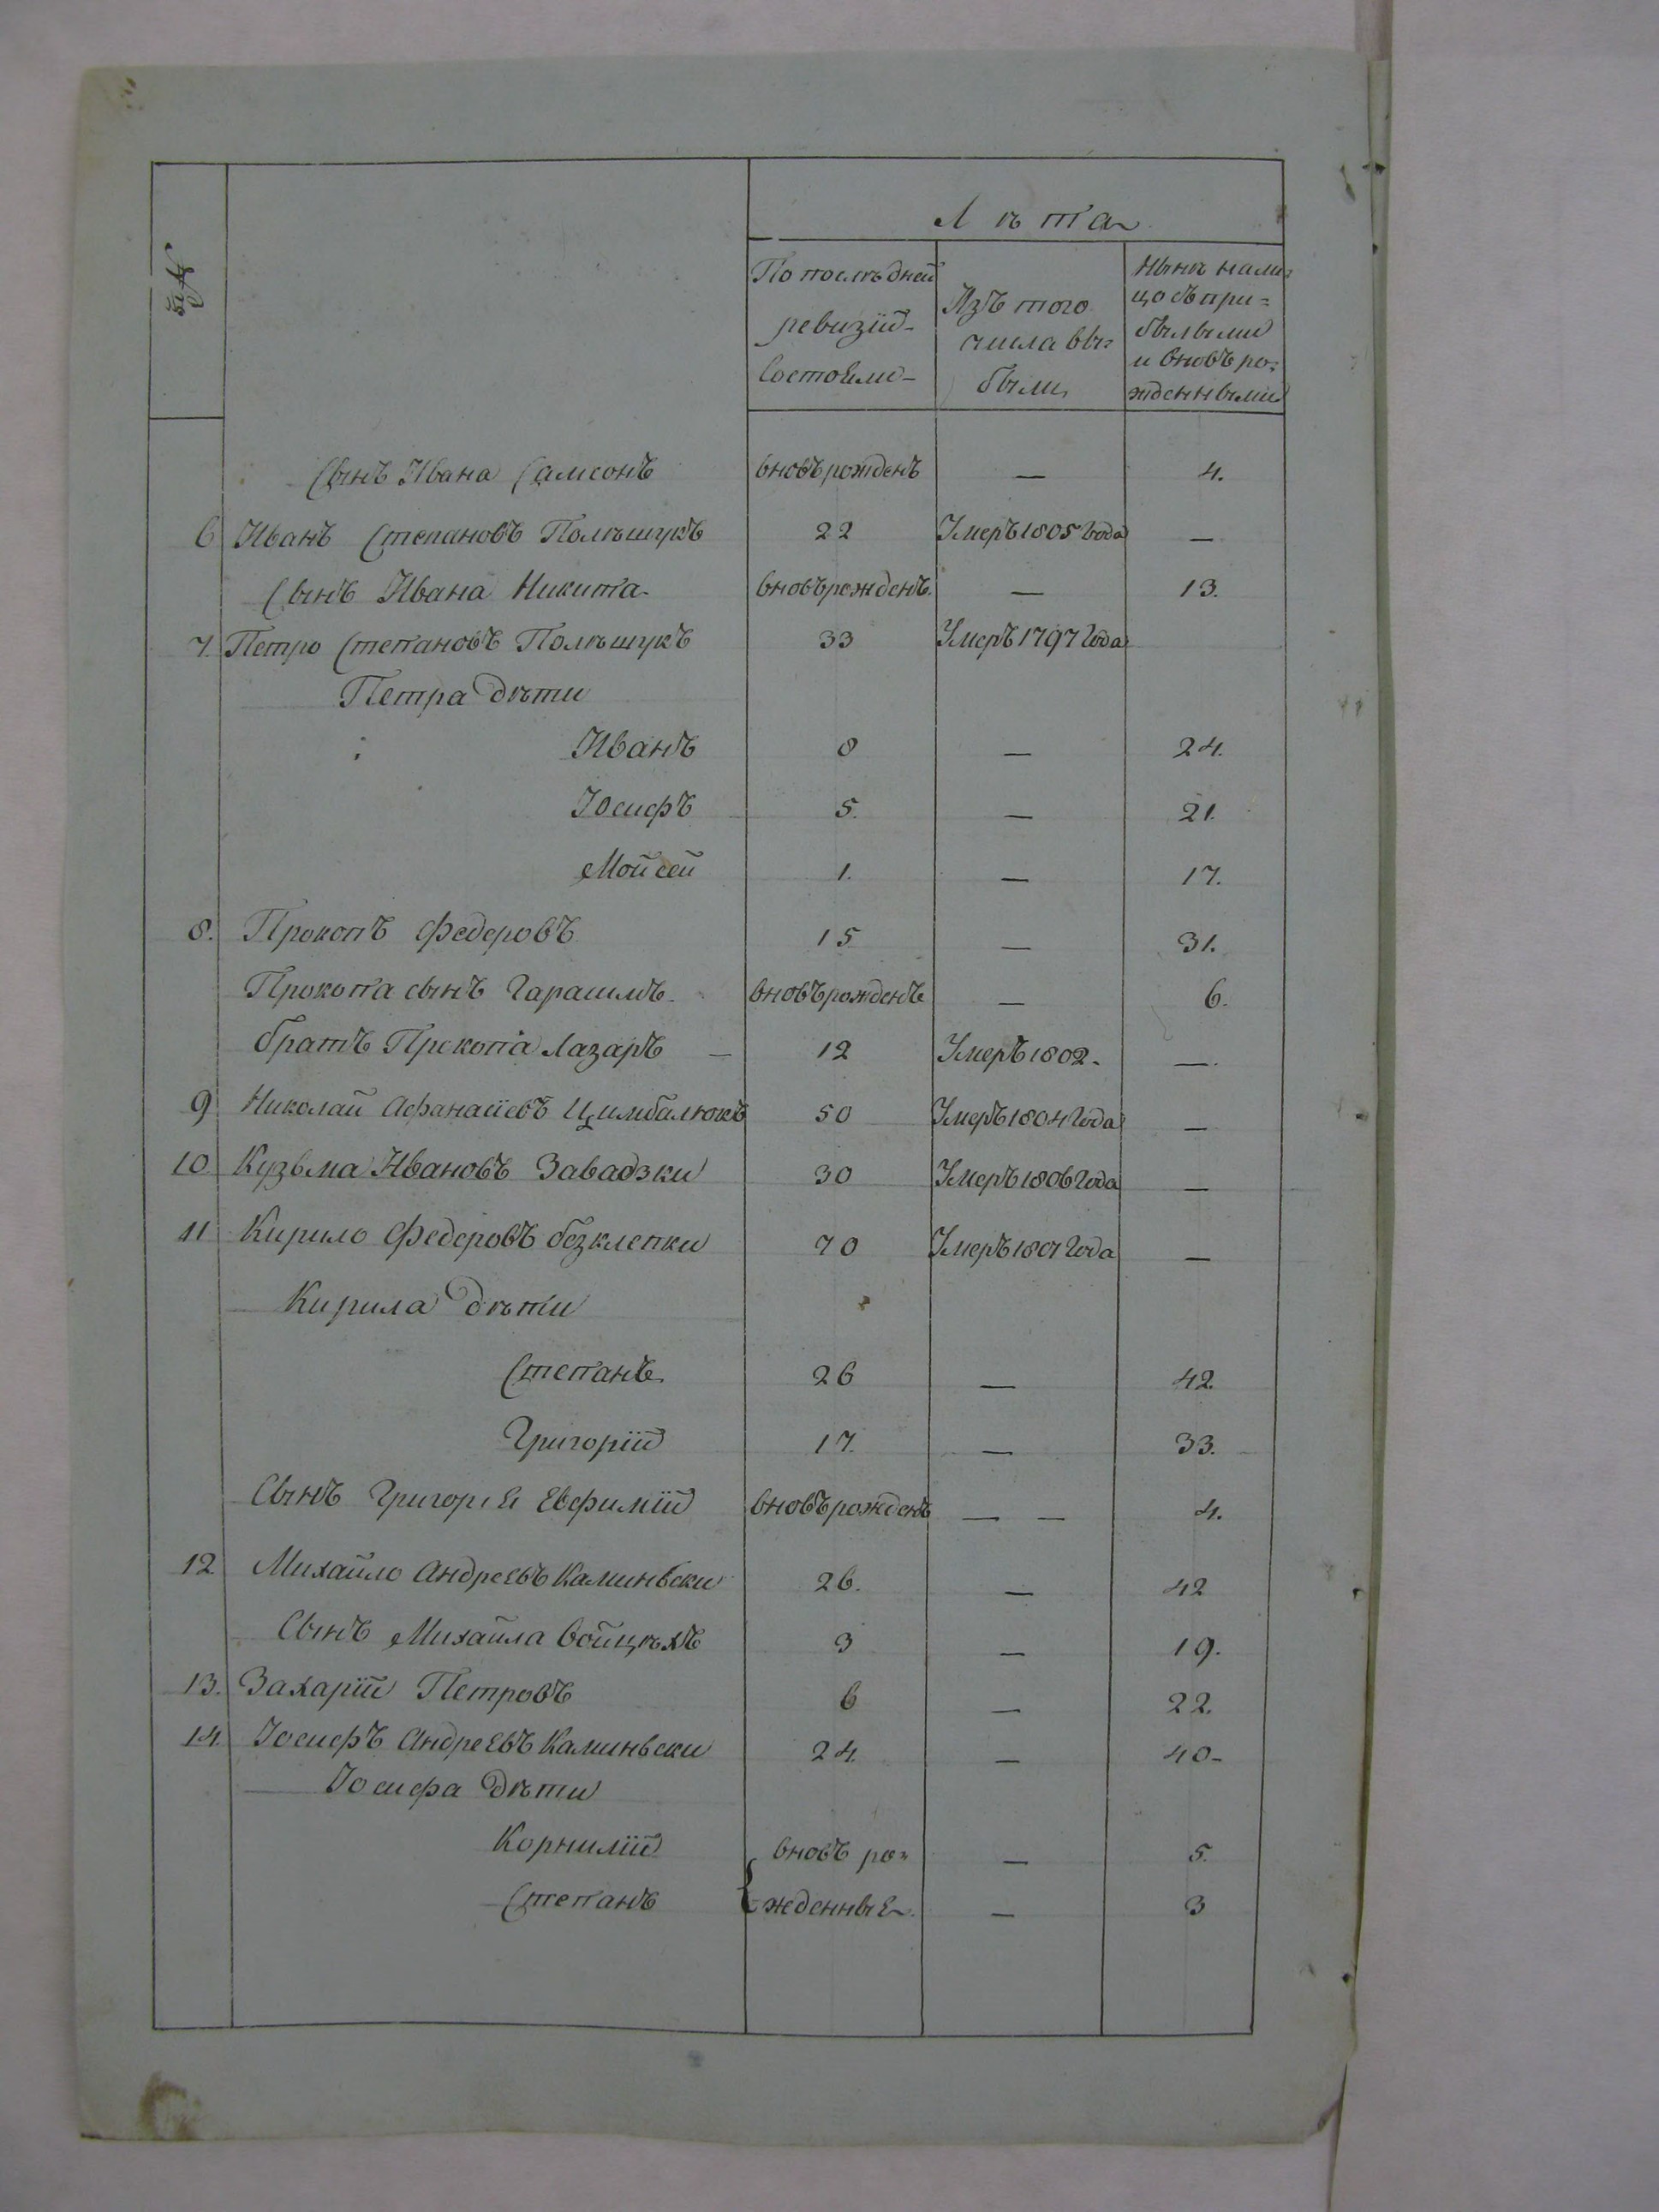 №
Лѣта
По послѣдней ревизіи состояли
Изъ того числа выбыли
Нынѣ налицо съ прибылыми и вновь рожденными
Сынъ Ивана Самсонъ вновь рожденъ — 4.
6 Иванъ Степановъ Полѣщукъ 22 Умеръ 1805 года —
Сынъ Ивана Никита вновь рожденъ — 13.
7. Петро Степановъ Полѣщукъ 33 Умеръ 1797 года
Петра дѣти
Иванъ 8 — 24.
Іосифъ 5. — 21.
Мойсей 1. — 17.
8. Прокопъ Федоровъ 15 — 31.
Прокопа сынъ Гарасимъ вновь рожденъ — 6.
братъ Прокопа Лазаръ — 12 Умеръ 1802. —
9 Николай Афанасіевъ Цимбалюкъ 50 Умеръ 1804 года —
10 Кузьма Ивановъ Завадзки 30 Умеръ 1806 года —
11 Кирило Федоровъ безклепки 70 Умеръ 1807 года —
Кирила дѣти
Степанъ 26 — 42.
Григорій 17. — 33.
Сынъ Григорія Евфимій вновь рожденъ — — 4.
12 Михайло Андреевъ Калиньски 26. — 42
Сынъ Михайла Войцѣхъ 3 — 19.
13. Захарій Петровъ 6 — 22.
14. Іосифъ Андреевъ Калиньски 24. — 40
Іосифа дѣти
Корнилій вновь ро= — 5.
Степанъ жденные — 3